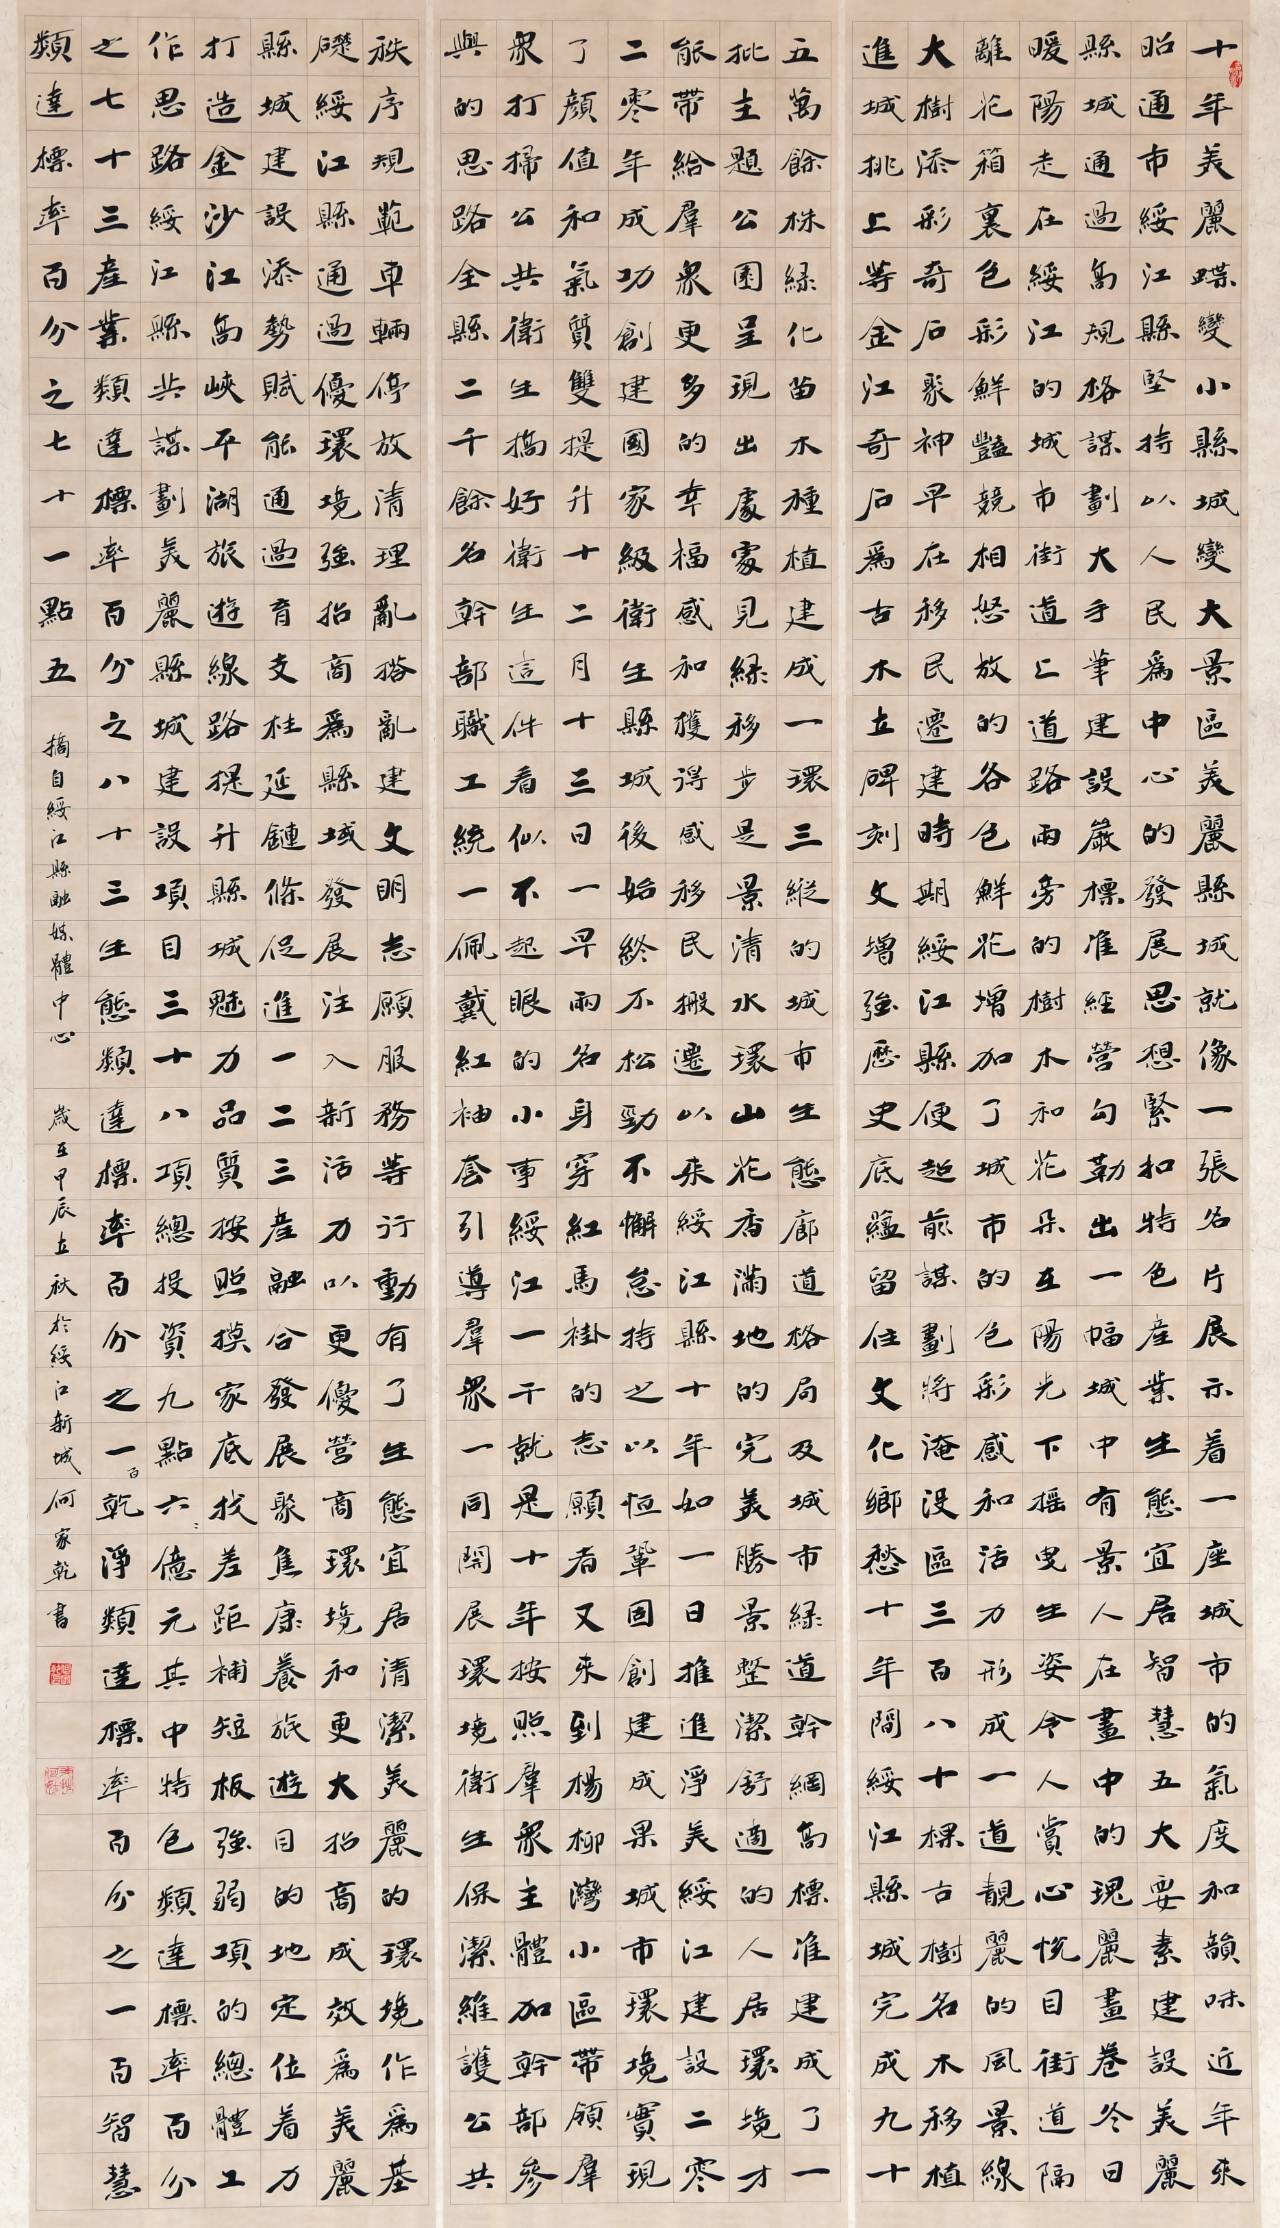 十年美麗蝶變小縣城變大景區美麗縣城就像一張名片展示着一座城市的氣度和韻味近年來
昭通市綏江縣堅持以人民爲中心的發展思想緊扣特色産業生態宜居智慧五大要素建設美麗
縣城通過高規格謀劃大手筆建設嚴標准經營勾勒出一幅城中有景人在畫中的瑰麗畫卷冬日
暖陽走在綏江的城市街道上道路兩旁的樹木和花朵在陽光下摇曳生姿令人賞心悅目街道隔
離花箱裏色彩鮮豔競相怒放的各色鮮花增加了城市的色彩感和活力形成一道靚麗的風景線
大樹添彩奇石聚神早在移民遷建時期綏江縣便超前謀劃將淹没區三百八十棵古樹名木移植
進城挑上等金江奇石爲古木立碑刻文增强歷史底藴留住文化鄉愁十年間綏江縣城完成九十
五萬餘株緑化苗木種植建成一環三縱的城市生態廊道格局及城市緑道幹綱高標准建成了一
批主題公園呈現出處處見緑移步是景清水環山花香滿地的完美勝景整潔舒適的人居環境才
能帶給羣衆更多的幸福感和獲得感移民搬遷以来綏江縣十年如一日推進淨美綏江建設二零
二零年成功創建國家級衛生縣城後始終不松勁不懈怠持之以恒鞏固創建成果城市環境實現
了顔值和氣質雙提升十二月十三日一早兩名身穿紅馬褂的志願者又來到楊柳灣小區帶領羣
衆打掃公共衛生搞好衛生這件看似不起眼的小事綏江一干就是十年按照羣衆主體加幹部參
與的思路全縣二千餘名幹部職工統一佩戴紅袖套引導羣衆一同開展環境衛生保潔維護公共
秩序規範車輛停放清理亂搭亂建文明志願服務等行動有了生態宜居清潔美麗的環境作爲基
礎綏江縣通過優環境强招商爲縣域發展注入新活力以更優營商環境和更大招商成效爲美麗
縣城建設添勢賦能通過育支柱延鏈條促進一二三産融合發展聚焦康養旅遊目的地定位着力
打造金沙江高峽平湖旅遊線路提升縣城魅力品質按照摸家底找差距補短板强弱項的總體工
作思路綏江縣共謀劃美麗縣城建設項目三十八項總投資九點六億元其中特色類達標率百分
之七十三産業類達標率百分之八十三生態類達標率百分之一百乾淨類達標率百分之一百智慧
類達標率百分之七十一點五
摘自綏江縣融媒體中心 歲在甲辰立秋於綏江新城何家乾書